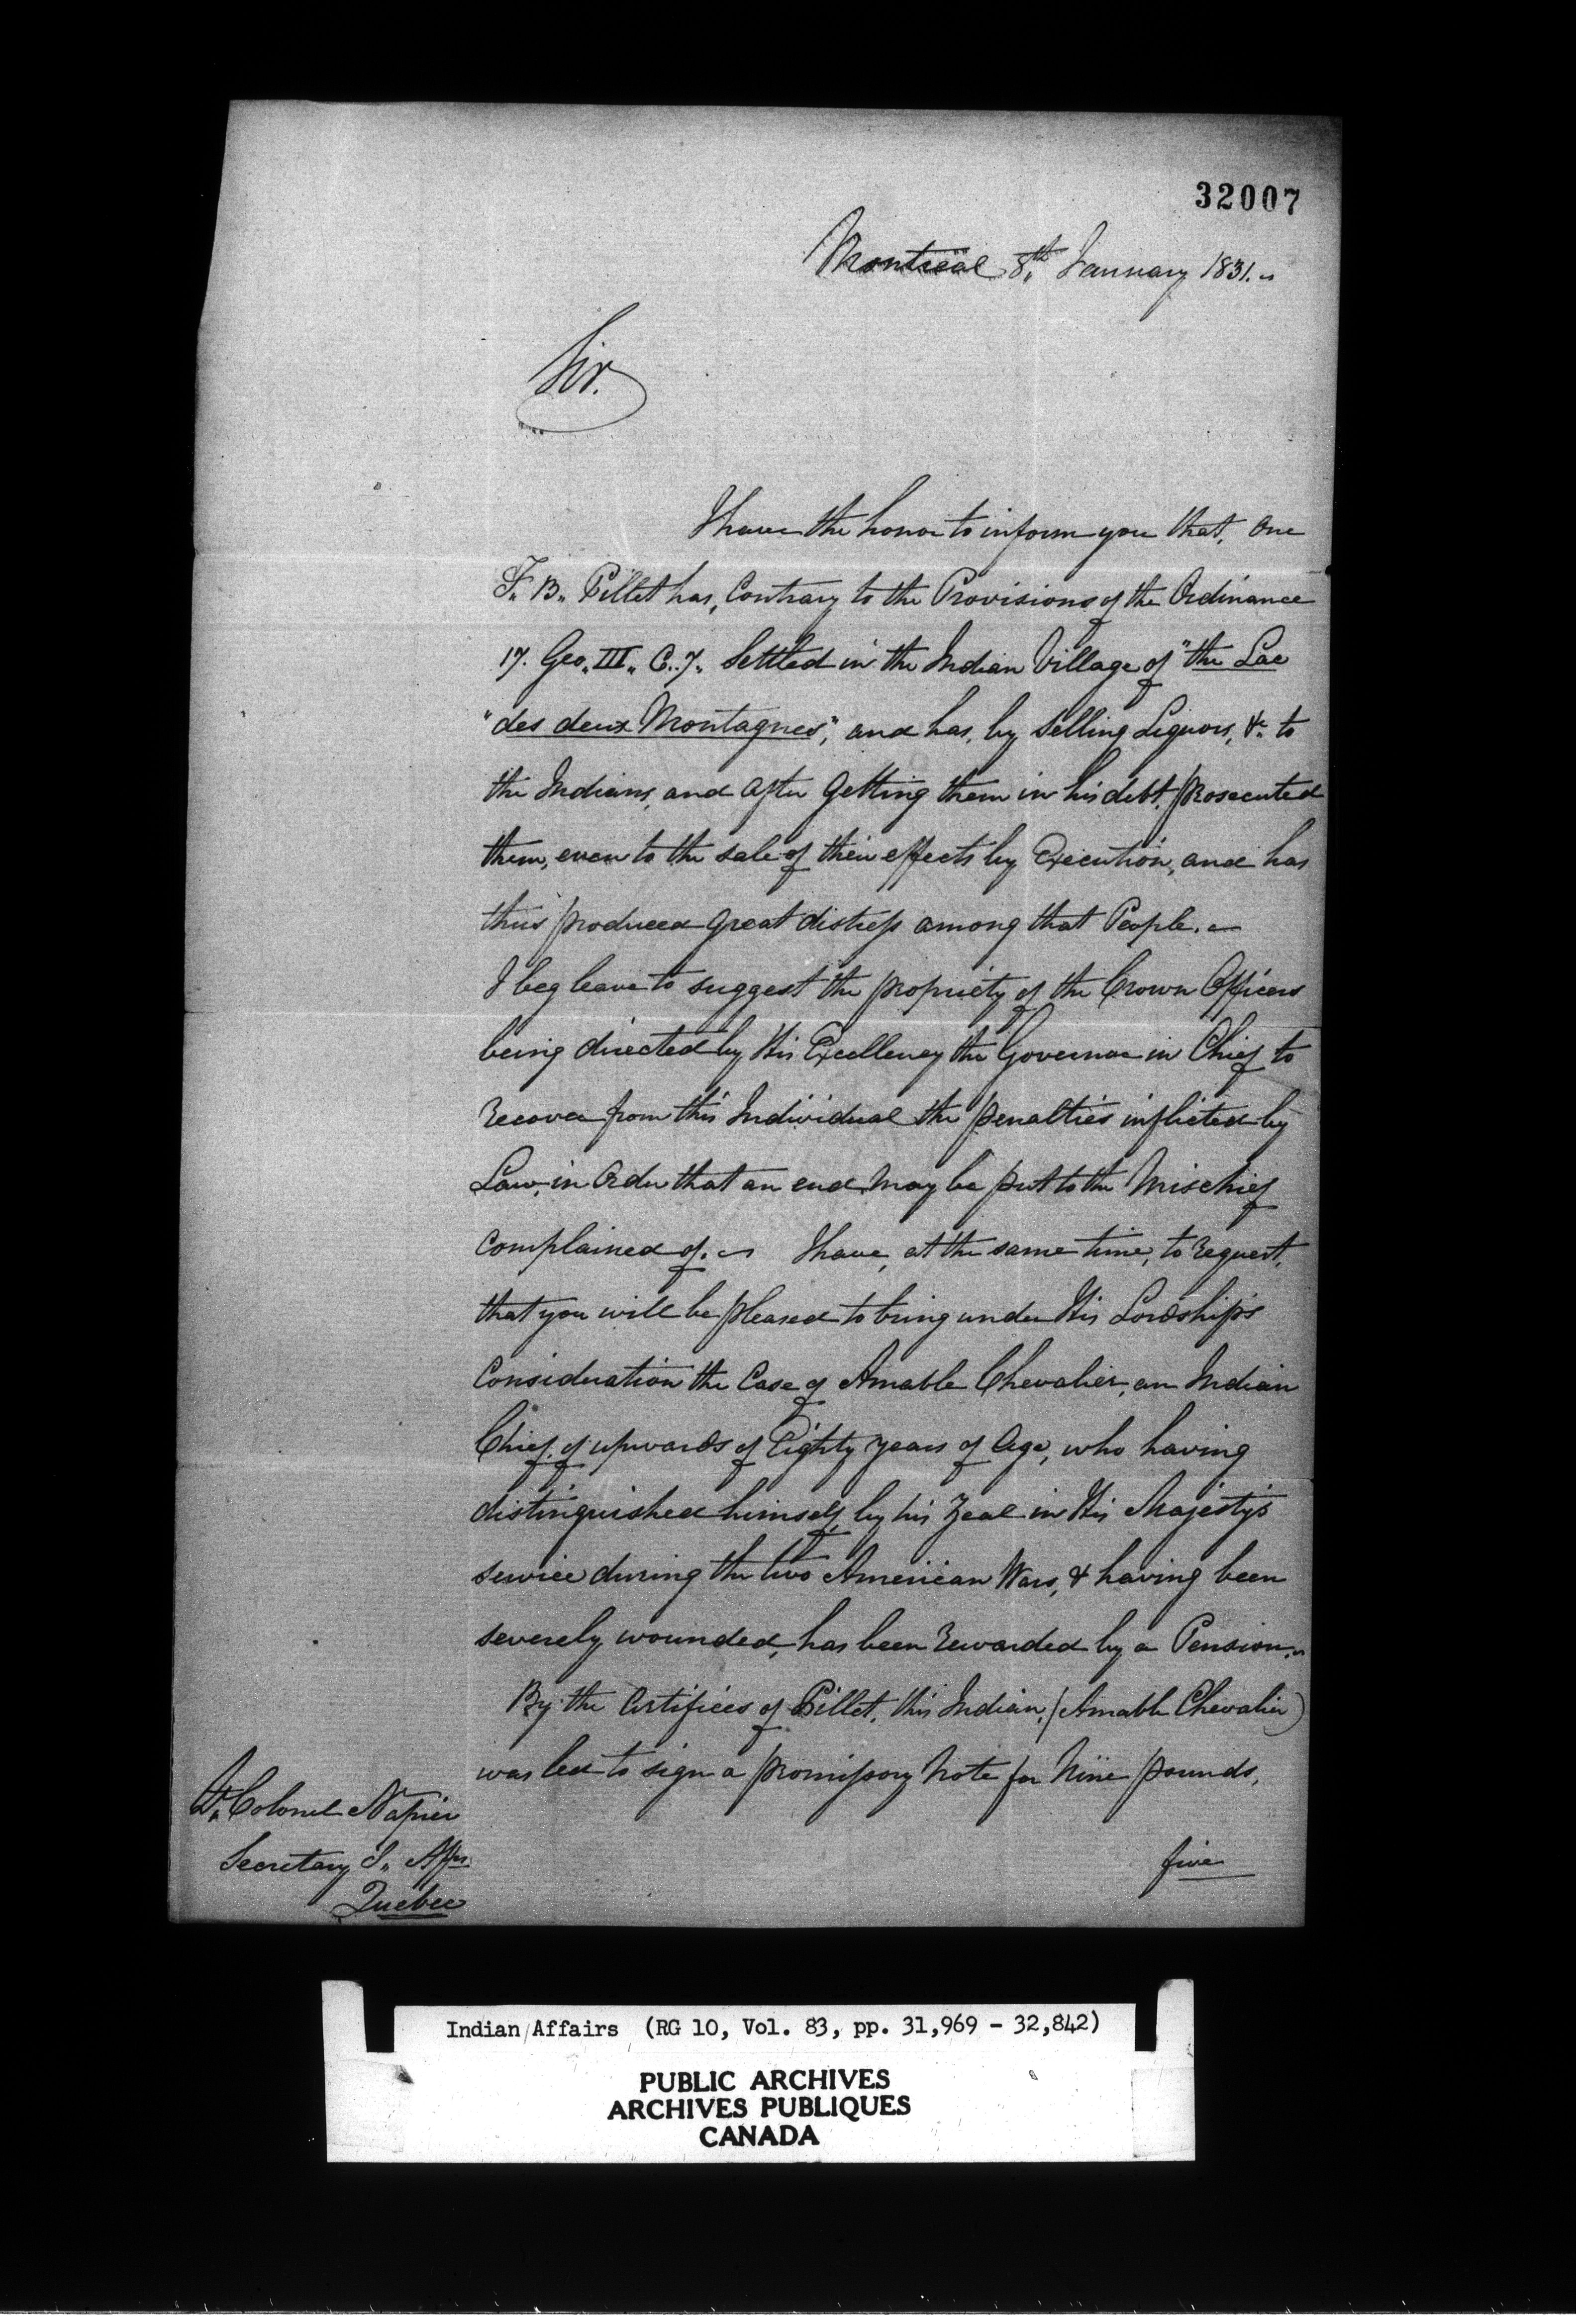 32007
Montreal 8th January 1831.
Sir.
I have the honor to inform you that, One
F. B. Pillet has, Contrary to the Provisions of the Ordinance
17. Geo. III. C. 7. Settled in the Indian Village of "the Lac
"des deux Montagnes", and has, by Selling Liquors, &c. to
the Indians, and after getting them in his debt, prosecuted
them, even to the sale of their effects by Execution, and has
thus produced great distress among that People.
I beg leave to suggest the propriety of the Crown Officers
being directed by His Excellency the Governor in Chief to
recover from this Individual the penalties inflicted by
Law, in Order that an end may be put to the Mischief
complained of. I have, at the same time, to request,
that you will be pleased to bring under His Lordship's
Consideration the Case of Amable Chevalier, an Indian
Chief of upwards of Eighty years of Age, who having
distinguished himself by his Zeal in His Majesty's
service during the two American Wars, & having been
severely wounded, has been rewarded by a Pension.
By the Artifices of Pillet, this Indian, (Amable Chevalier)
was led to sign a promissory Note for Nine pounds,
five
Lt. Colonel Napier
Secretary I. Affrs.
Quebec
Indian Affairs (RG 10, Vol. 83, pp. 31,969 - 32,842)
PUBLIC ARCHIVES
ARCHIVES PUBLIQUES
CANADA